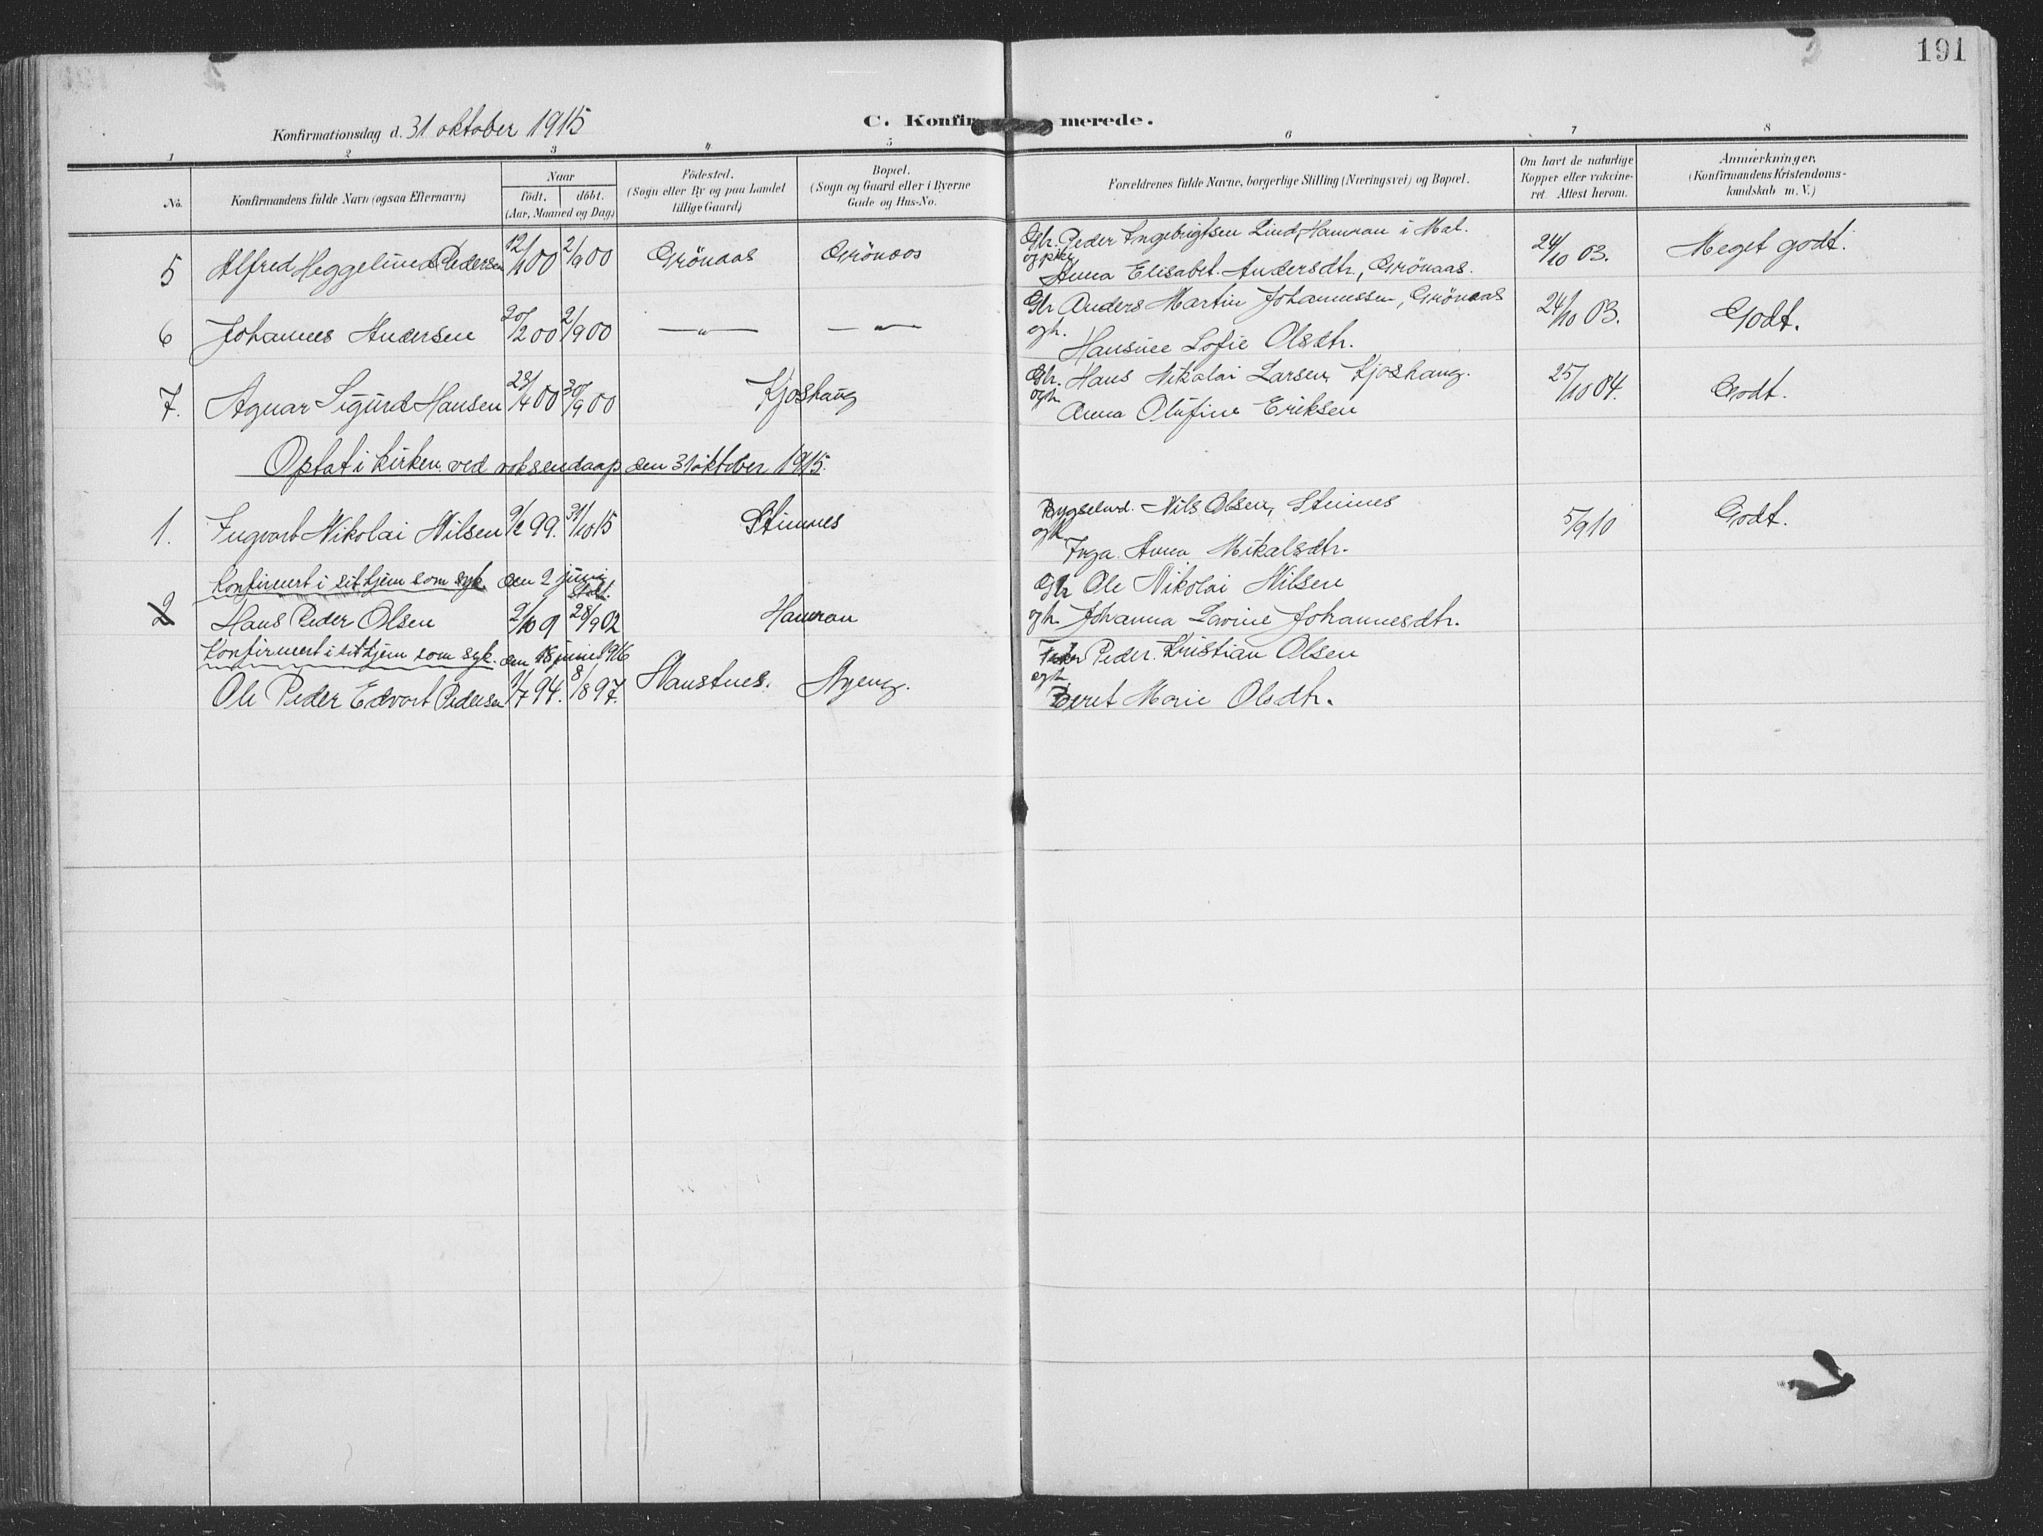 191
Konfirmationsdag d. 31 oktober 1915
C. Konfir merede.
1 2 3 4 5 6 7 8
No.
Konfirmandens fulde Navn (ogsaa Efternavn)
Naar
födt. döbt.
(Aar, Maaned og Dag)
Födested.
(Sogn eller By og paa Landet
tillige Gaard)
Bopæl.
(Sogn og Gaard eller i Byerne
Gade og Hus-No.
Forældrenes fulde Navne, borgerlige Stilling (Næringsvei) og Bopæl.
Om havt de naturlige
Kopper eller vakcine-
ret. Attest herom.
Anmerkninger,
(Konfirmandens Kristendoms-
kundskab m. V.)
5 Alfred Heggelund Pedersen 12/1 00 2/9 00 Grönaas Grönaas Gbr. Peder Ingebrigtsen Lind, Hamran i Mal. 24/10 03. Meget godt.
Anna Elisabet Andersdtr, Grönaas.
6 Johannes Andersen 20/2 00 2/9 00 —"— —"— Gbr Anders Martin Johannessen, Grönaas 24/10 03. Godt.
ogh. Hansine Sofie Olsdtr.
7. Agnar Sigurd Hansen 23/4 00 30/9 00 Kjoshaug Gbr. Hans Nikolai Larsen, Kjoshaug. 25/10 04. Godt.
ogh. Anna Olufine Eriksen
Optat i kirken ved voksendaap den 31 oktober 1915.
1. Ingvart Nikolai Nilsen 9/2 99. 31/10 15 Stinnes Bygselmd. Nils Olsen, Stinnes 5/9 10 Godt.
ogh. Inga Anna Mikalsdtr.
Konfirmert i sit hjem som syk den 2 juni
2 Hans Peder Olsen 9/10 01 28/9 02 Hamran Gbr Ole Nikolai Nilsen
ogh. Johanna Lovine Johannesdtr.
Konfirmert i sit hjem som syk. den 18 juni 1916
Ole Peder Edvart Pedersen 9/7 94. 8/8 97. Stanstnes. Nyeng. Peder Kristian Olsen
ogh. Beret Marie Olsdtr.